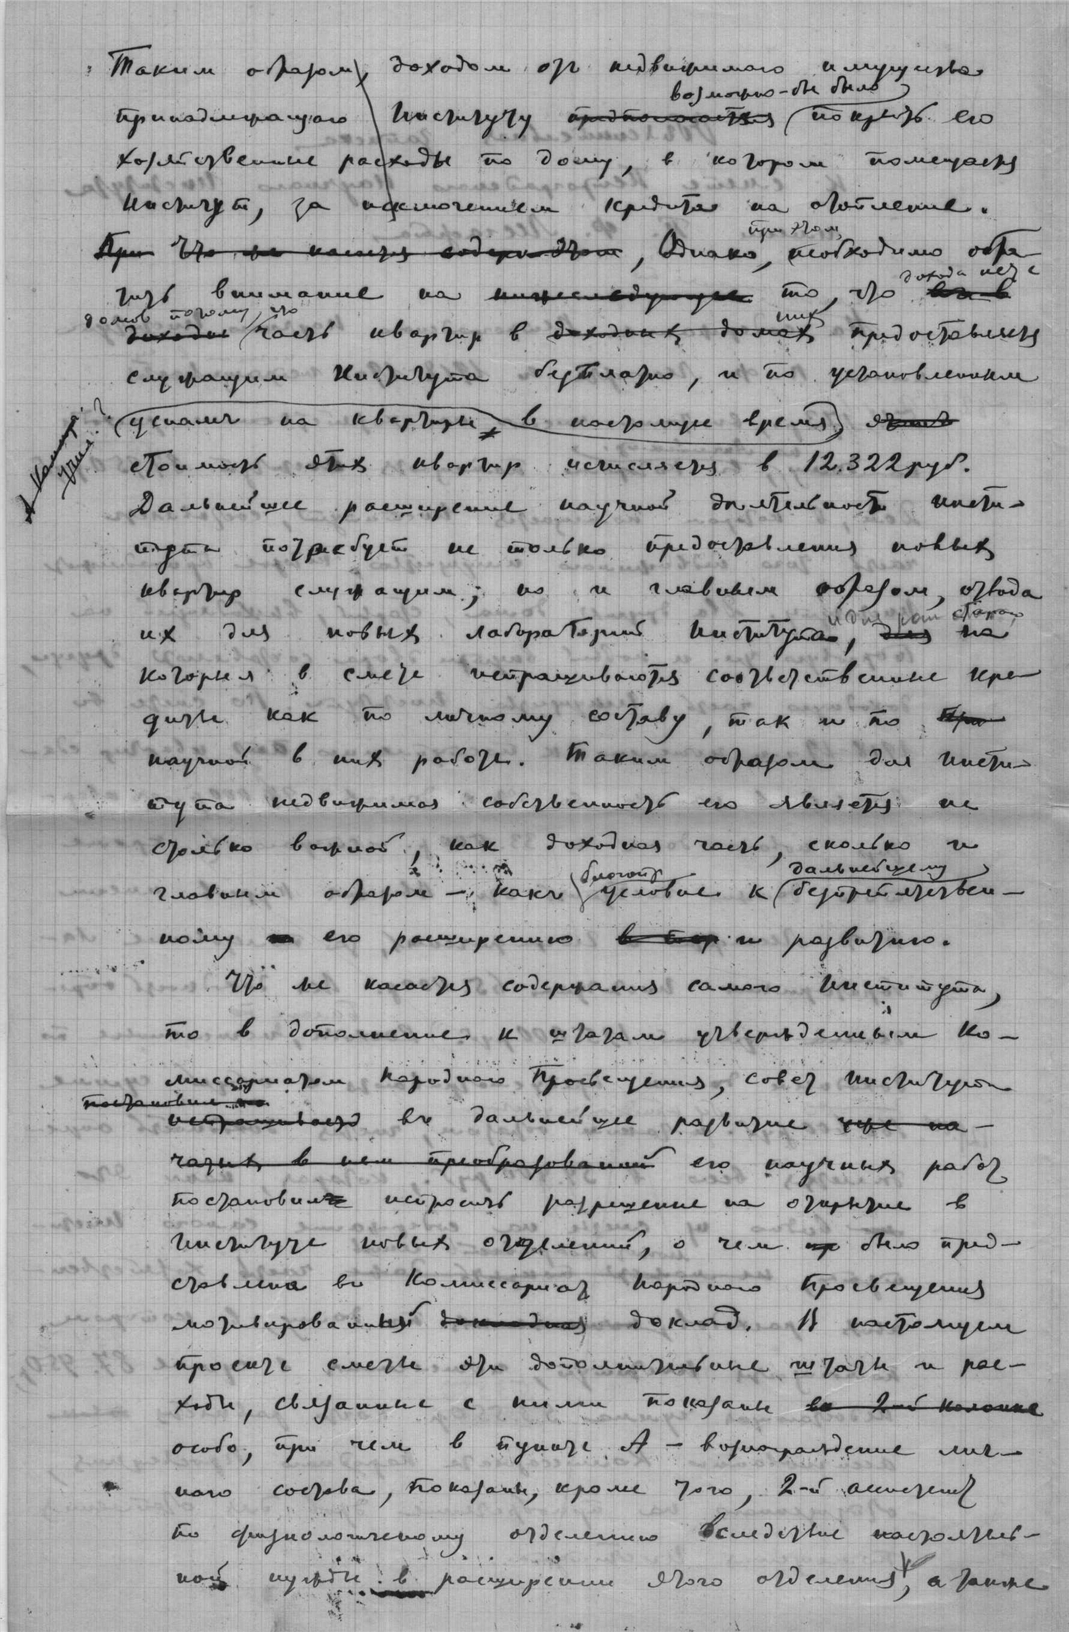 Таким образом, доходом от недвижимого имущества
возможно-бы было
принадлежащаго Институту предполагается покрыть его
хозяйственные расходы по дому, в котором помещается
Институт, за исключением кредита на отопление.
при этом
При Что же касается содерж этом, Однако, необходимо обра-
дохода
тить внимание на нижеследующее то, что
домов потому, что них
доходн часть квартир в доходных домах предоставляется
служащим Института бесплатно, и по установленным
ценам на квартиры в настоящее время
стоимость этих квартир исчисляется в 12.322 руб.
Дальнейшее расширение научной деятельности Инсти-
тута потребует не только предоставления новых
квартир служащим, но и главным образом, отвода
их для новых лабораторий Института, для на
которыя в смете испрашиваются соответственные кре-
диты как по личному составу, так и по при
научной в них работе. Таким образом для Инсти-
тута недвижимая собственность его является не
столько важной, как доходная часть, сколько и
дальнейшему
главным образом – какъ условие к беспрепятствен-
ному его расширению и развитию.
Что же касается содержания самого Института,
то в дополнение к штатам утвержденным Ко-
миссариатом Народного Просвещения, совет Института
постановил
испрашивает в дальнейшее развитие уже на-
чатых в нем преобразований его научных работ
постановил испросить разрешение на открытие в
Институте новых отделений, о чем было пред-
ставлено в Комиссариат Народного Просвещения
мотивированный докладная доклад. В настоящем
проекте сметы эти дополнительные штаты и рас-
ходы, связанные с ними показаны во 2-й колонке
особо, при чем в пункте А – вознаграждение лич-
ного состава, показаны, кроме того, 2-й ассистент
по физиологическому отделению вследствие настоятель-
ной нужды в расширении этого отделения, а также